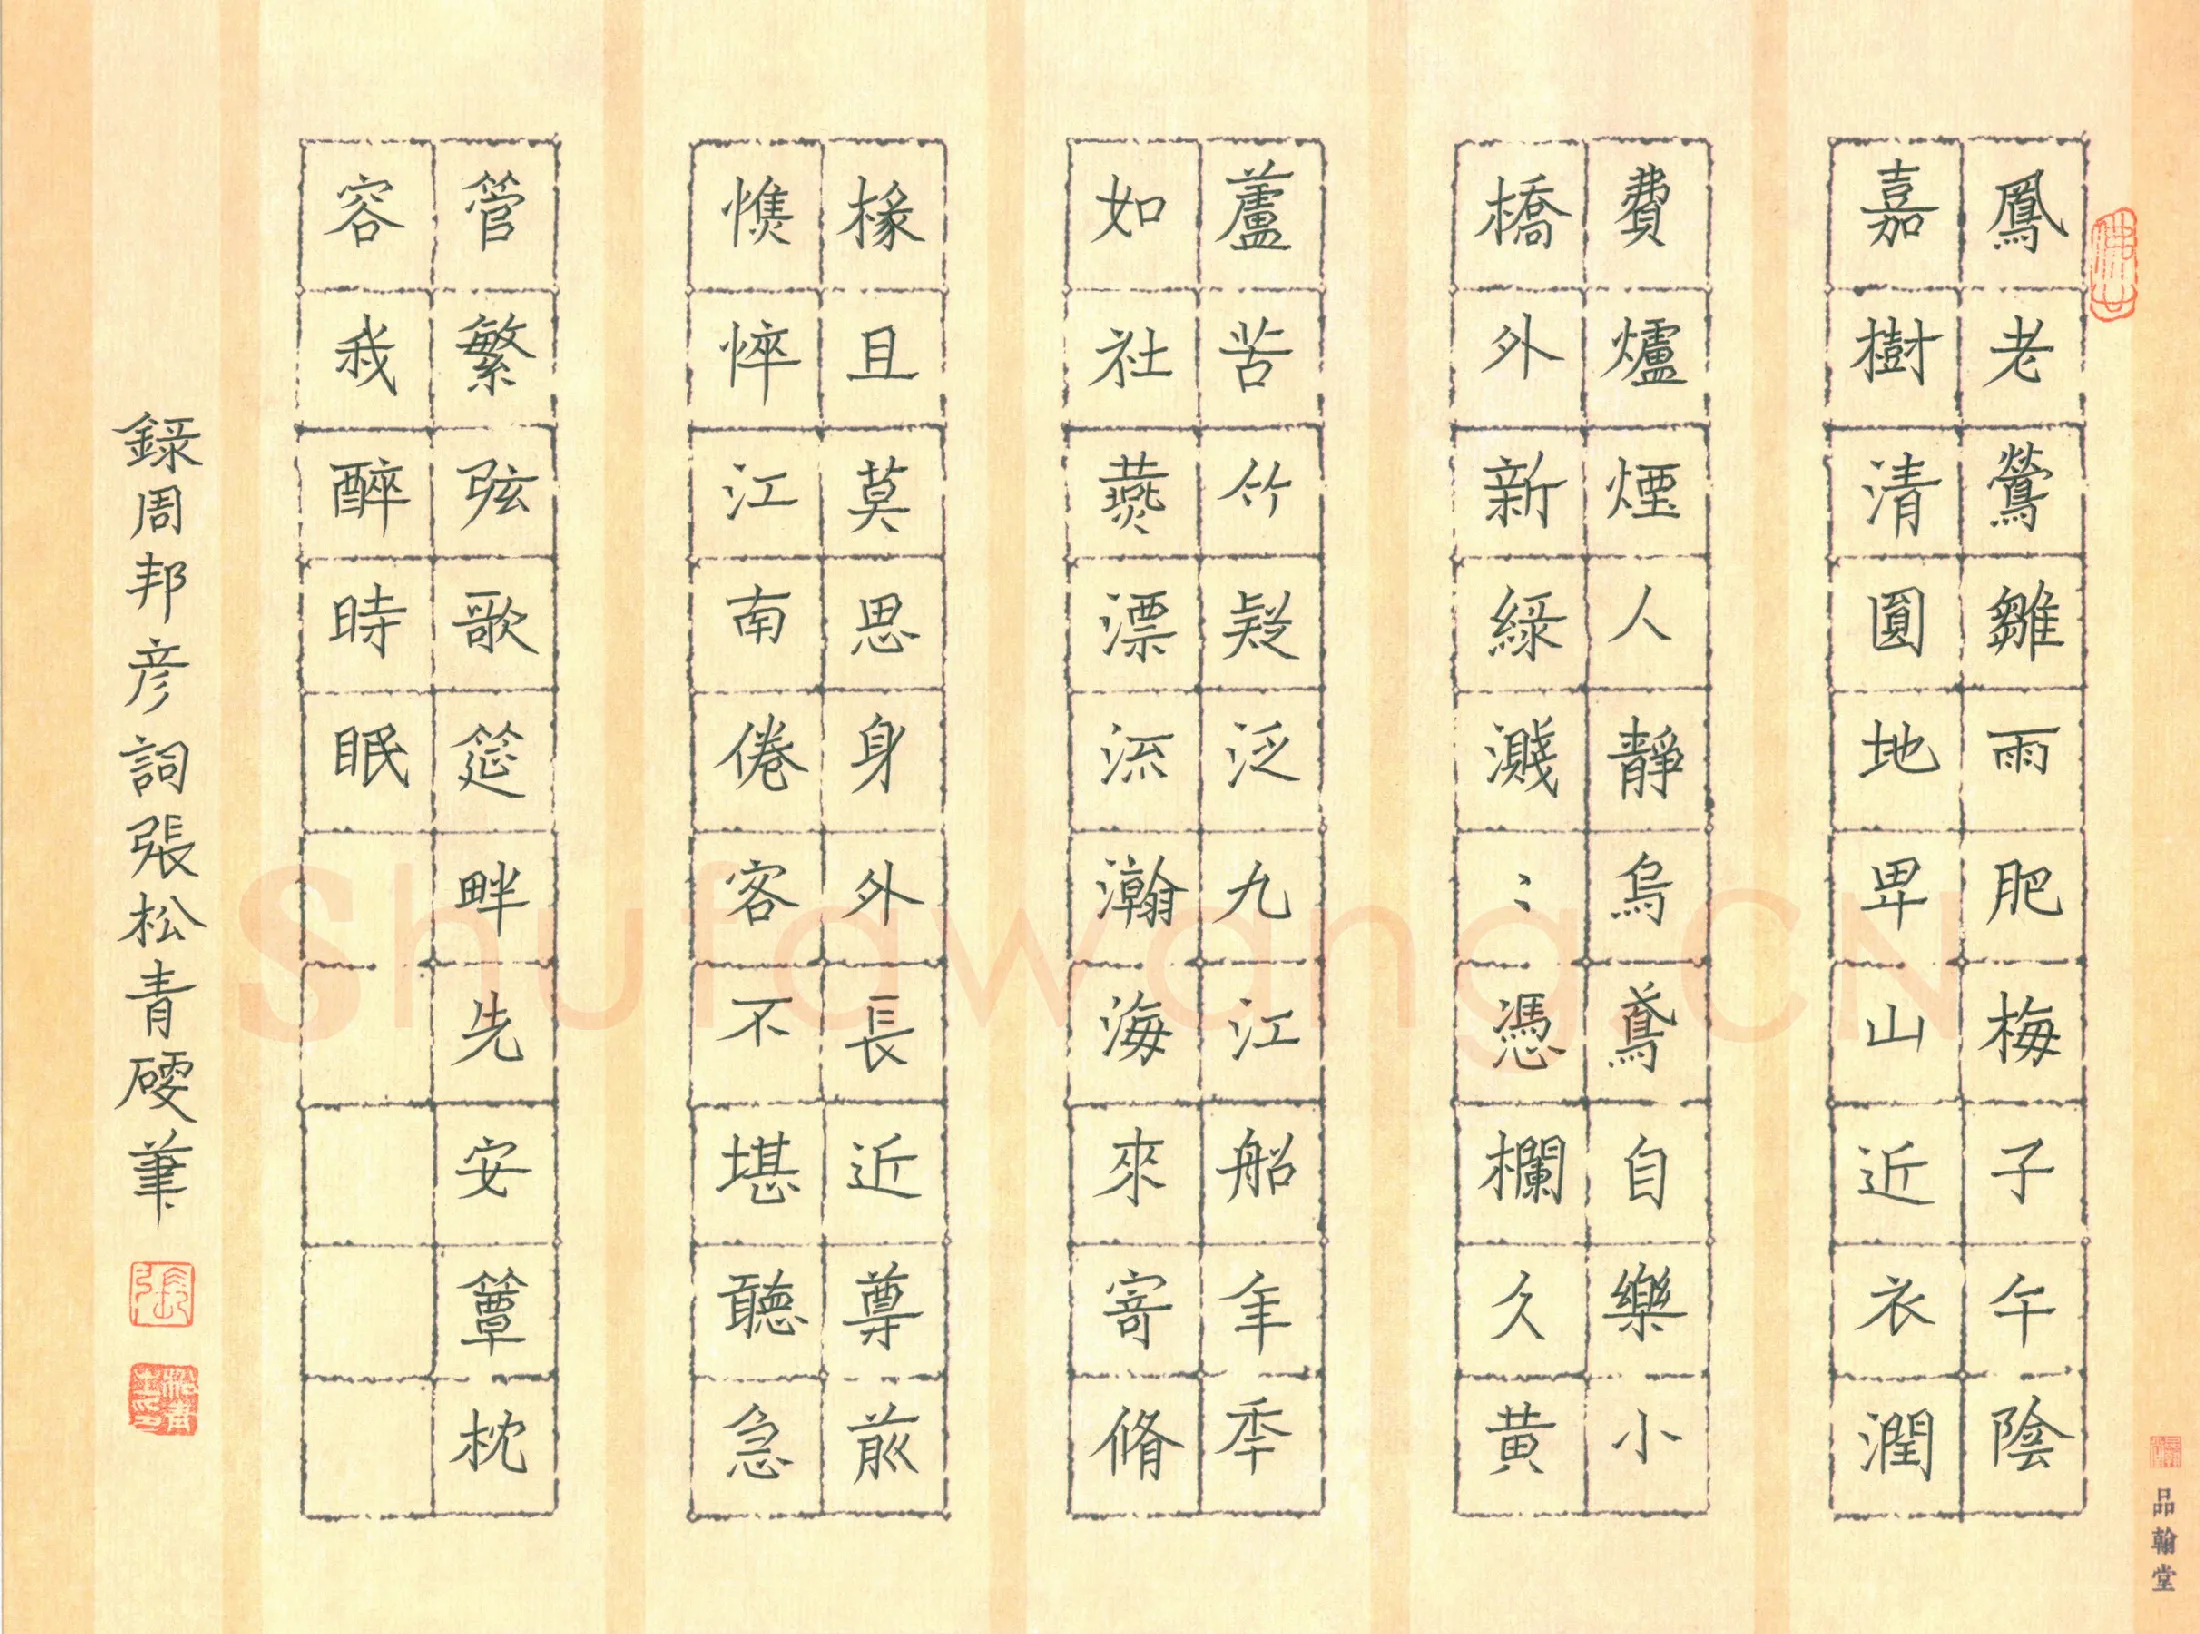 鳳老鶯雛雨肥梅子午陰
嘉樹清圓地卑山近衣潤
費爐煙人靜烏鳶自樂小
橋外新綠濺〻憑欄久黄
蘆苦竹疑泛九江船年秊
如社燕漂流瀚海來寄脩
椽且莫思身外長近尊前
憔悴江南倦客不堪聽急
管繁弦歌筵畔先安簟枕
容我醉時眠
錄周邦彦詞張松青硬筆
佛山
品翰堂
Shufawang.CN